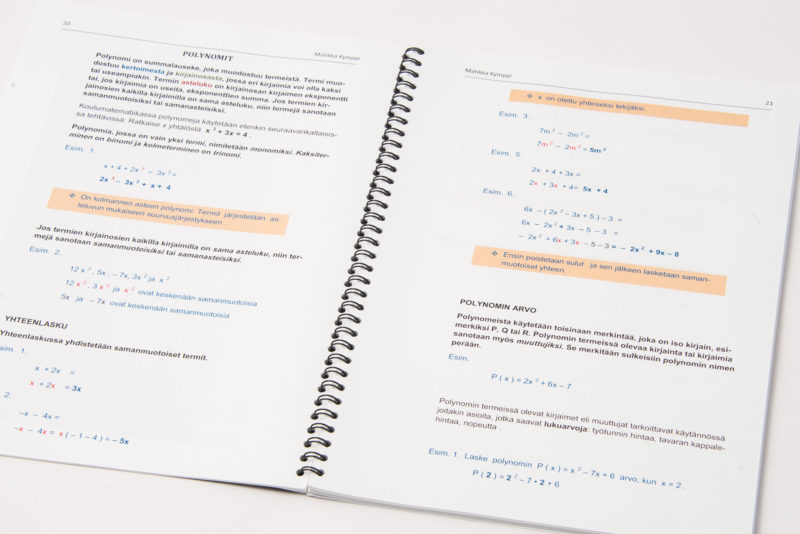 20
Matikka Kymppi
POLYNOMIT
Polynomi on summalauseke, joka muodostuu termeistä. Termi muo-
dostuu kertoimesta ja kirjainosasta, jossa eri kirjaimia voi olla kaksi
tai useampiakin. Termin asteluku on kirjainosan kirjaimen eksponentti
tai, jos kirjaimia on useita, eksponenttien summa. Jos termien kir-
jainosien kaikilla kirjaimilla on sama asteluku, niin termejä sanotaan
samanmuotoisiksi tai samanasteisiksi.
Koulumatematiikassa polynomeja käytetään etenkin seuraavankaltaisis-
sa tehtävissä: Ratkaise x yhtälöstä x² + 3x = 4 .
Polynomia, jossa on vain yksi termi, nimitetään monomiksi. Kaksiter-
minen on binomi ja kolmeterminen on trinomi.
Esim. 1.
x + 4 + 2x³ – 3x² =
2x³ – 3x² + x + 4
❖ On kolmannen asteen polynomi. Termit järjestetään as-
tetuvun mukaiseen suuruusjärjestykseen .
Jos termien kirjainosien kaikilla kirjaimilla on sama asteluku, niin ter-
mejä sanotaan samanmuotoisiksi tai samanasteisiksi.
Esim. 2.
12 x² , 5x , – 7x, 3x² ja x²
12 x² , 3 x² ja x² ovat keskenään samanmuotoisia
5x ja – 7x ovat keskenään samanmuotoisia
YHTEENLASKU
Yhteenlaskussa yhdistetään samanmuotoiset termit.
sim. 1.
x + 2x =
x + 2x = 3x
2.
–x – 4x =
–x – 4x = x ( – 1 – 4 ) = – 5x
Matikka Kymppi
21
❖ x on otettu yhteiseksi tekijäksi.
Esim. 3.
7m² – 2m² =
7m² – 2m² = 5m²
Esim. 5.
2x + 4 + 3x =
2x + 3x + 4 = 5x + 4
Esim. 6.
6x – ( 2x² – 3x + 5 ) – 3 =
6x – 2x² + 3x – 5 – 3 =
– 2x² + 6x + 3x – 5 – 3 = – 2x² + 9x – 8
❖ Ensin poistetaan sulut ja sen jälkeen lasketaan saman-
muotoiset yhteen.
POLYNOMIN ARVO
Polynomeista käytetään toisinaan merkintää, joka on iso kirjain, esi-
merkiksi P, Q tai R. Polynomin termissä olevaa kirjainta tai kirjaimia
sanotaan myös muuttujiksi. Se merkitään sulkeisiin polynomin nimen
perään.
Esim.
P ( x ) = 2x² + 6x – 7
Polynomin termeissä olevat kirjaimet eli muuttujat tarkoittavat käytännössä
joitakin asioita, jotka saavat lukuarvoja: työtunnin hintaa, tavaran kappale-
hintaa, nopeutta .
Esim. 1. Laske polynomin P ( x ) = x² – 7x + 6 arvo, kun x = 2 .
P ( 2 ) = 2² – 7 • 2 + 6